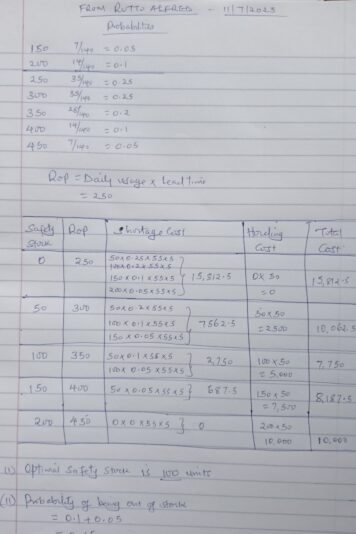 FROM RUTTO ALFRED - 11/7/2025
Probabilities
150 7/140 = 0.05
200 14/140 = 0.1
250 35/140 = 0.25
300 35/140 = 0.25
350 28/140 = 0.2
400 14/140 = 0.1
450 7/140 = 0.05
Rop = Daily usage x Lead time
= 250
Safety Stock Rop Shortage Cost Holding Cost Total Cost
0 250 50x0.25x55x5
100x0.2x55x5
150x0.1x55x5 } 15,812.5 0x50 15,812.5
200x0.05x55x5 = 0
50 300 50x0.2x55x5 50x50
100x0.1x55x5 } 7562.5 = 2500 10,062.5
150x0.05x55x5
100 350 50x0.1x55x5 } 2,750 100x50 7,750
100x0.05x55x5 = 5,000
150 400 50x0.05x55x5 } 687.5 150x50 8,187.5
= 7,500
200 450 0x0x55x5 } 0 200x50
10,000 10,000
(i) Optimal Safety Stock is 100 units
(ii) Probability of being out of stock
= 0.1 + 0.05